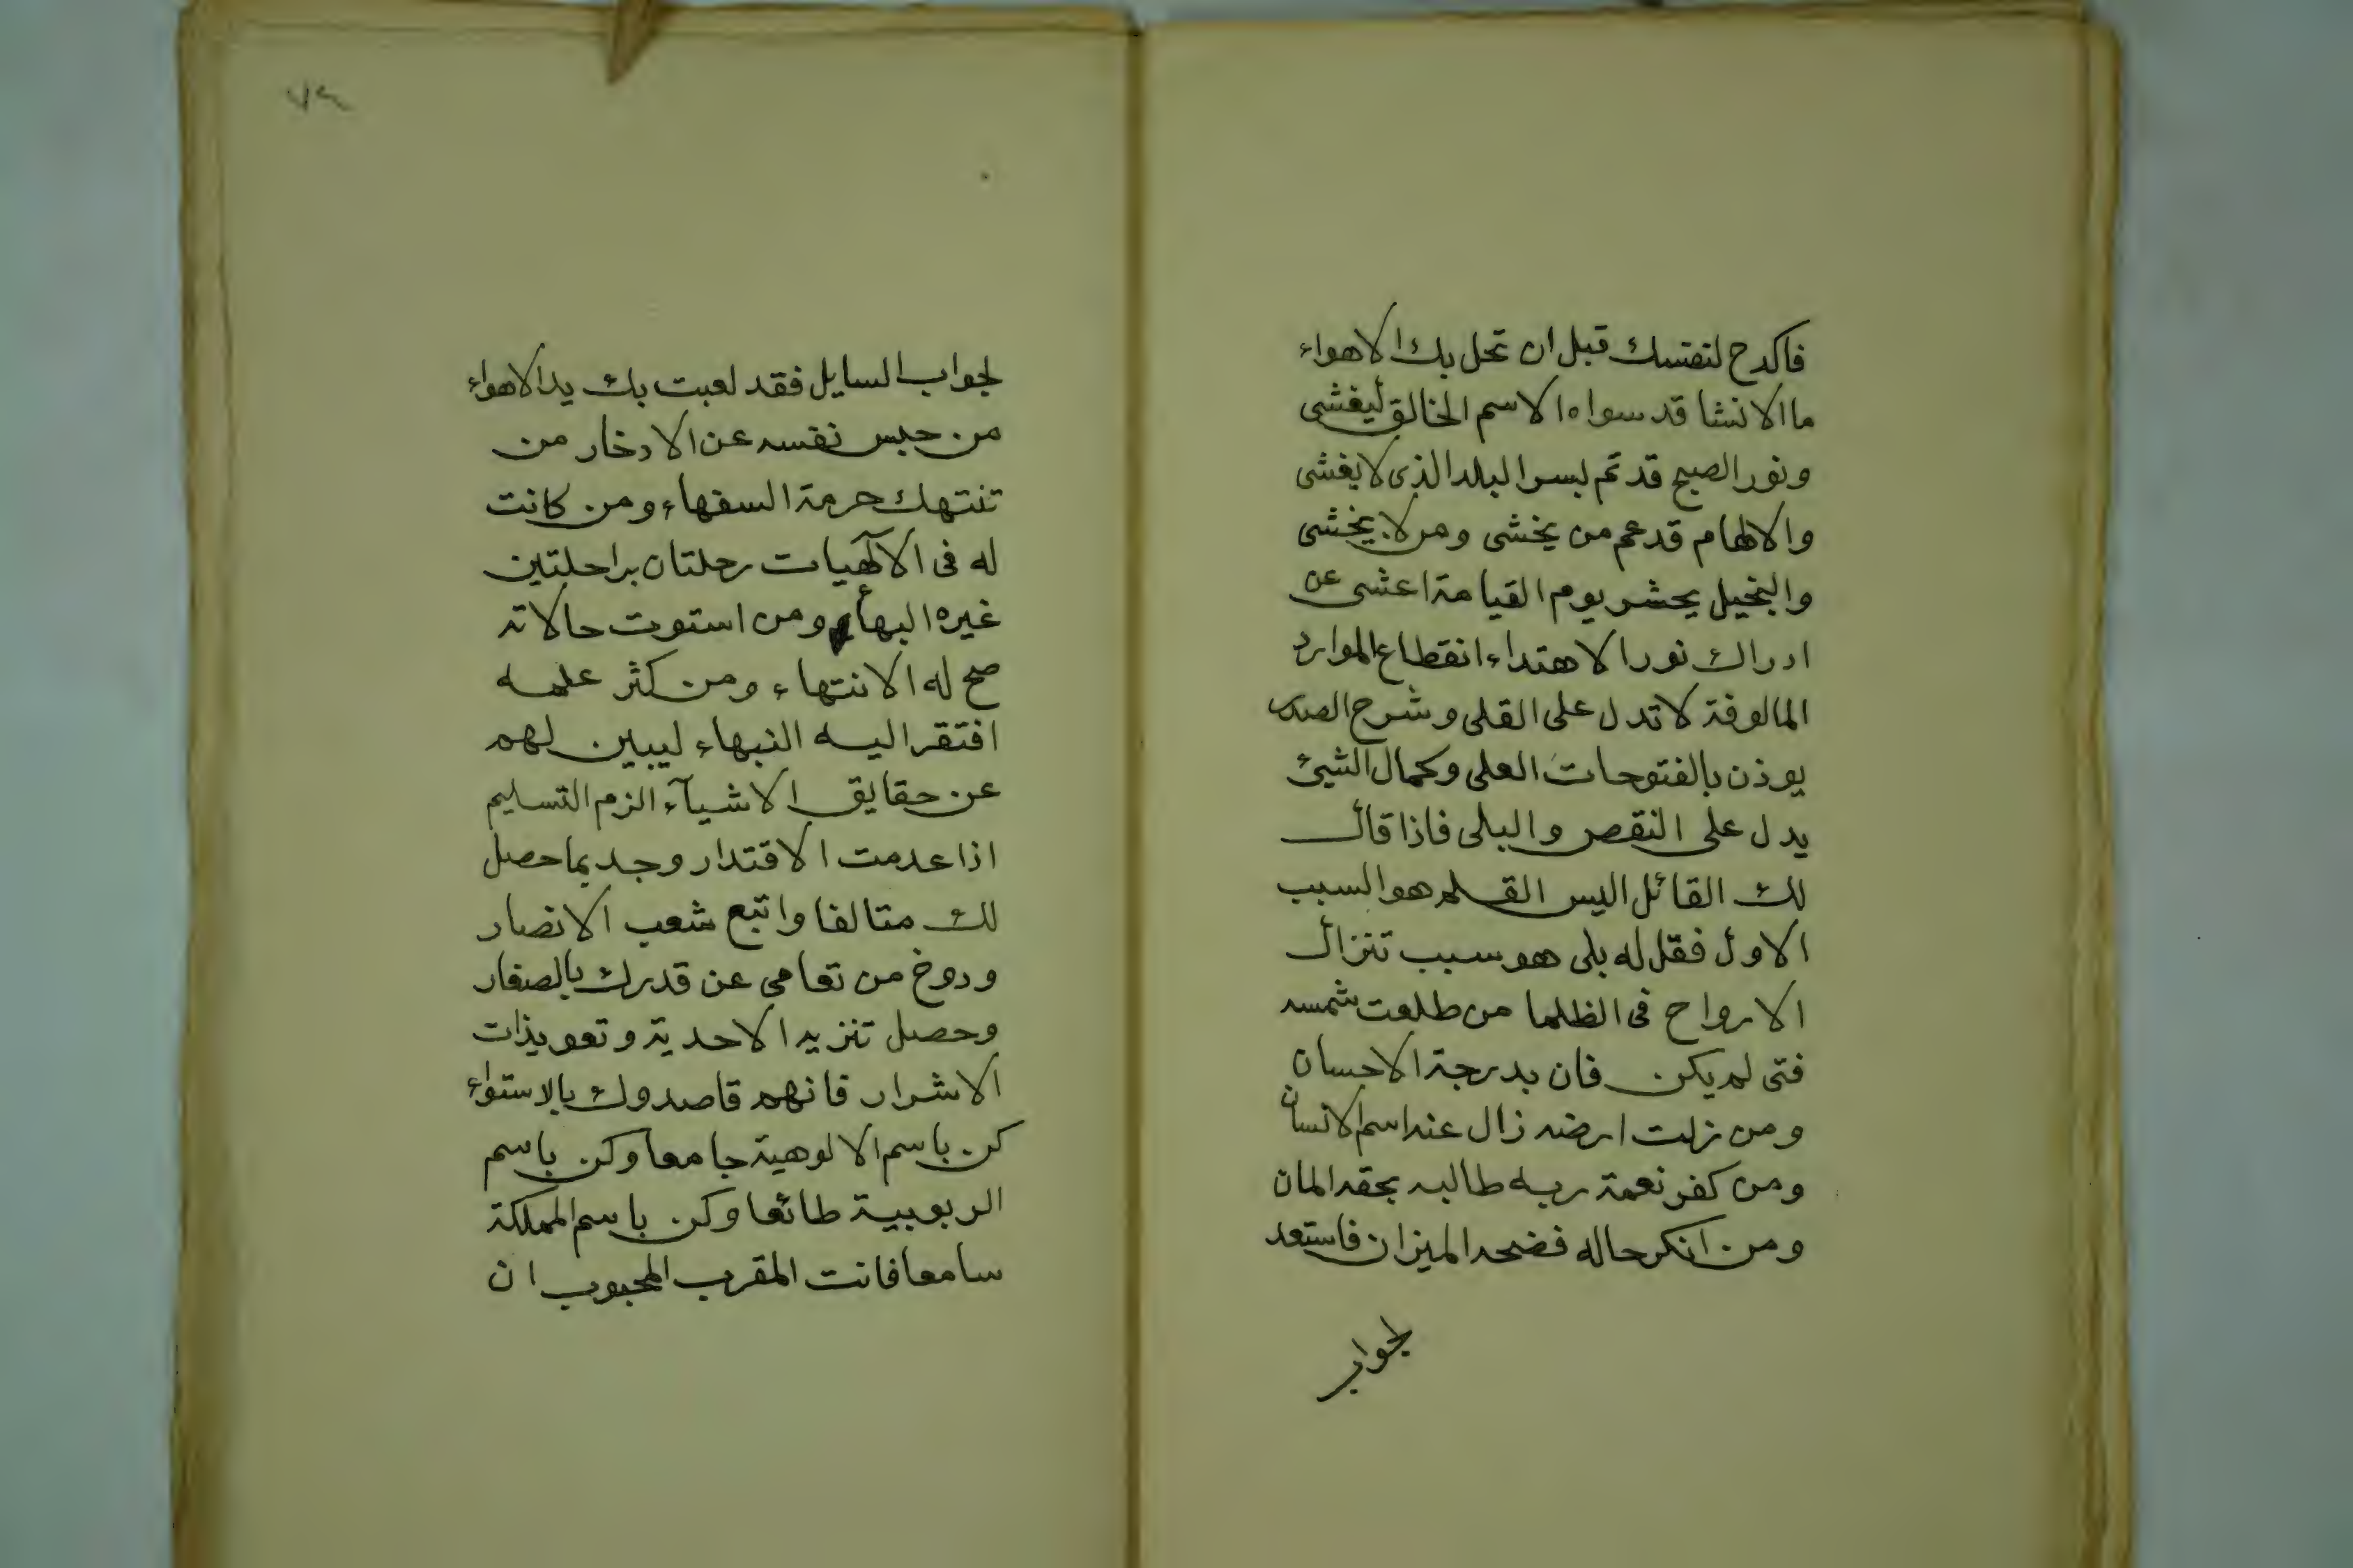 فاكدح لنفسك قبل ان تحل بك الاهواء
ما الانشا قد سواه الاسم الخالق ليغشى
ونور الصبح قد تم لبسر البلد الذى لا يغشى
والالهام قد عم من يخشى ومن لا يخشى
والبخيل يحشر يوم القيامة اعشى عن
ادراك نور الاهتداء انقطاع الموارد
المالوفة لا تدل على القلى وشرح الصدر
يوذن بالفتوحات العلى وكمال الشئ
يدل على النقص والبلى فاذا قال
لك القائل اليس القلم هو السبب
الاول فقل له بلى هو سبب تنزال
الارواح فى الظلما من طلعت شمسه
فتى لم يكن فان بدرجة الاحسان
ومن زلت ارضه زال عنه اسم الانسان
ومن كفر نعمة ربه طالبه بحقه المان
ومن انكر حاله فضحه الميزان فاستعد
لجواب
٧٤
لجواب السايل فقد لعبت بك يد الاهواء
من حبس نفسه عن الادخار من
تنتهك حرمة السفهاء ومن كانت
له فى الآلهيات رحلتان براحلتين
غيره البهاء ومن استوت حالاته
صح له الانتهاء ومن كثر علمه
افتقر اليه النبهاء ليبين لهم
عن حقايق الاشيآء الزم التسليم
اذا عدمت الاقتدار وجد بما حصل
لك متالفا واتبع شعب الانصار
ودوخ من تعامى عن قدرك بالصغار
وحصل تنزيه الاحدية وتعويذات
الاشرار فانهم قاصدوك بالاستواء
كن باسم الالوهية جامعا وكن باسم
الربوبية طائعا وكن باسم المملكة
سامعا فانت المقرب المحبوب ان